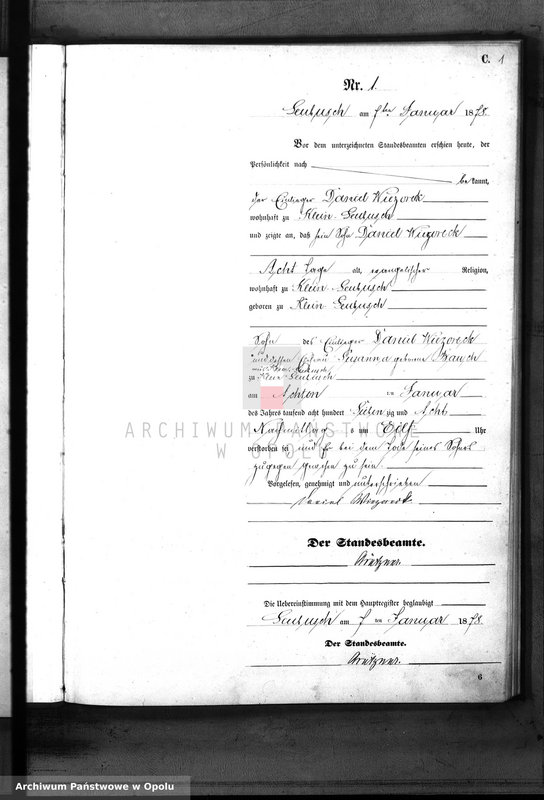 C. 1
Nr. 1.
Leubusch am ten Januar 1878
Vor dem unterzeichneten Standesbeamten erschien heute, der
Persönlichkeit nach
be kannt,
der Einlieger Daniel Wiezorek
wohnhaft zu Klein Leubusch
und zeigte an, daß sein Sohn Daniel Wiezoreck
Acht Tage alt, evangelischer Religion,
wohnhaft zu Klein Leubusch
geboren zu Klein Leubusch
Sohn des Einlieger Daniel Wiezoreck
und dessen Ehefrau Susanna geborene
zu Klein Leubusch
am Achten Januar
des Jahres tausend acht hundert Sieben zig und Acht
Nachmittags um Elf Uhr
verstorben sei und Er bei dem Tode seines Sohnes
zugegen gewesen zu sein.
Vorgelesen, genehmigt und unterschrieben
Daniel Wiezorek
Der Standesbeamte.
Die Uebereinstimmung mit dem Hauptregister beglaubigt
Leubusch am ten Januar 1878
Der Standesbeamte.
6
ARCHIWUM PAŃSTWOWE
W OPOLU
Archiwum Państwowe w Opolu